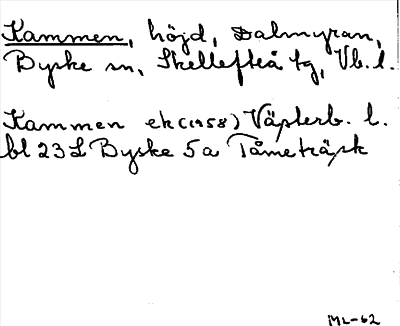 Kammen, höjd, Dalmyran,
Byske sn, Skellefteå tg, Vb. l.
Kammen ek (1958) Västerb. l.
bl 23 L Byske 5a Tåmeträsk
ML-62